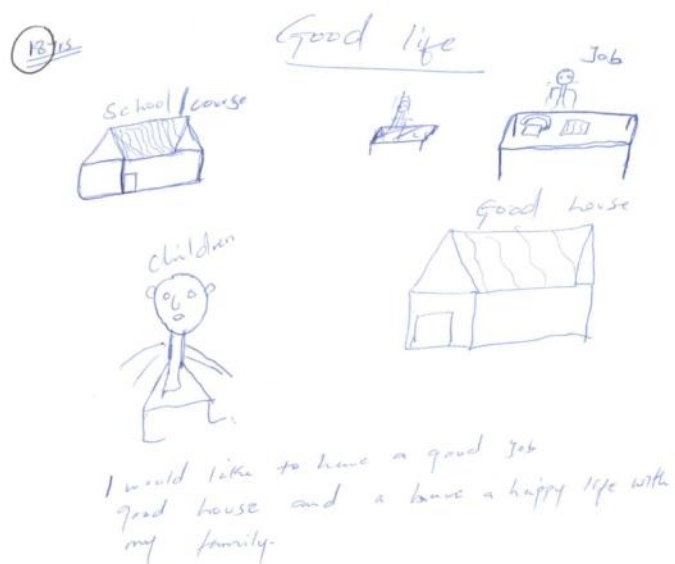 18 yrs
Good life
Job
School/course
Good house
children
I would like to have a good Job
good house and a have a happy life with
my family.